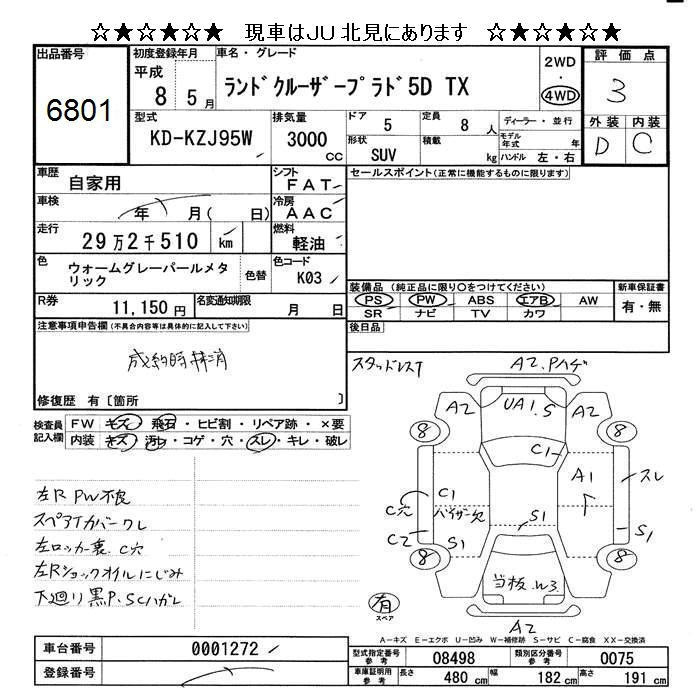 ☆★☆★☆★ 現車はJU北見にあります ☆★☆★☆★
出品番号
6801
初度登録年月
平成
8 5月
車名・グレード
ランドクルーザープラド5D TX
2WD
・
4WD
評価点
3
外装 内装
D C
型式
KD-KZJ95W
排気量
3000
CC
ドア
5
定員
8 人
ディーラー・並行
モデル年式 年
形状
SUV
積載
kg
ハンドル 左・右
車歴
自家用
シフト
FAT
車検
年 月( 日)
冷房
AAC
走行
29万2千510 km
燃料
軽油
色
ウォームグレーパールメタリック
色替
色コード
K03
R券
11,150円
名変通知期限
月 日
セールスポイント(正常に機能するものに限ります)
装備品 (純正品に限り○をつけてください)
PS PW ABS エアB AW
SR ナビ TV カワ
新車保証書
有・無
後日品
注意事項申告欄(不具合内容等は具体的に記入して下さい)
成約時抹消
修復歴 有〔箇所 〕
検査員記入欄
FW キズ・飛石・ヒビ割・リペア跡・×要
内装 キズ・汚レ・コゲ・穴・スレ・キレ・破レ
左R PW不良
スペアタイカバークレ
左ロッカー裏 C穴
左Rショックオイルにじみ
下廻り黒P、SCハガレ
スタッドレスT
A2.Pハゲ
A2
UA1.S
A2
8
8
C1
A1
スレ
C穴
C1
バイザー欠
S1
C2
S1
S1
8
8
当板 W3
有
スペア
A2
A-キズ E-エクボ U-凹み W-補修跡 S-サビ C-腐食 XX-交換済
車台番号
0001272
登録番号
型式指定番号
参考
08498
類別区分番号
参考
0075
車庫証明用
参考
長さ
480 cm
幅
182 cm
高さ
191 cm